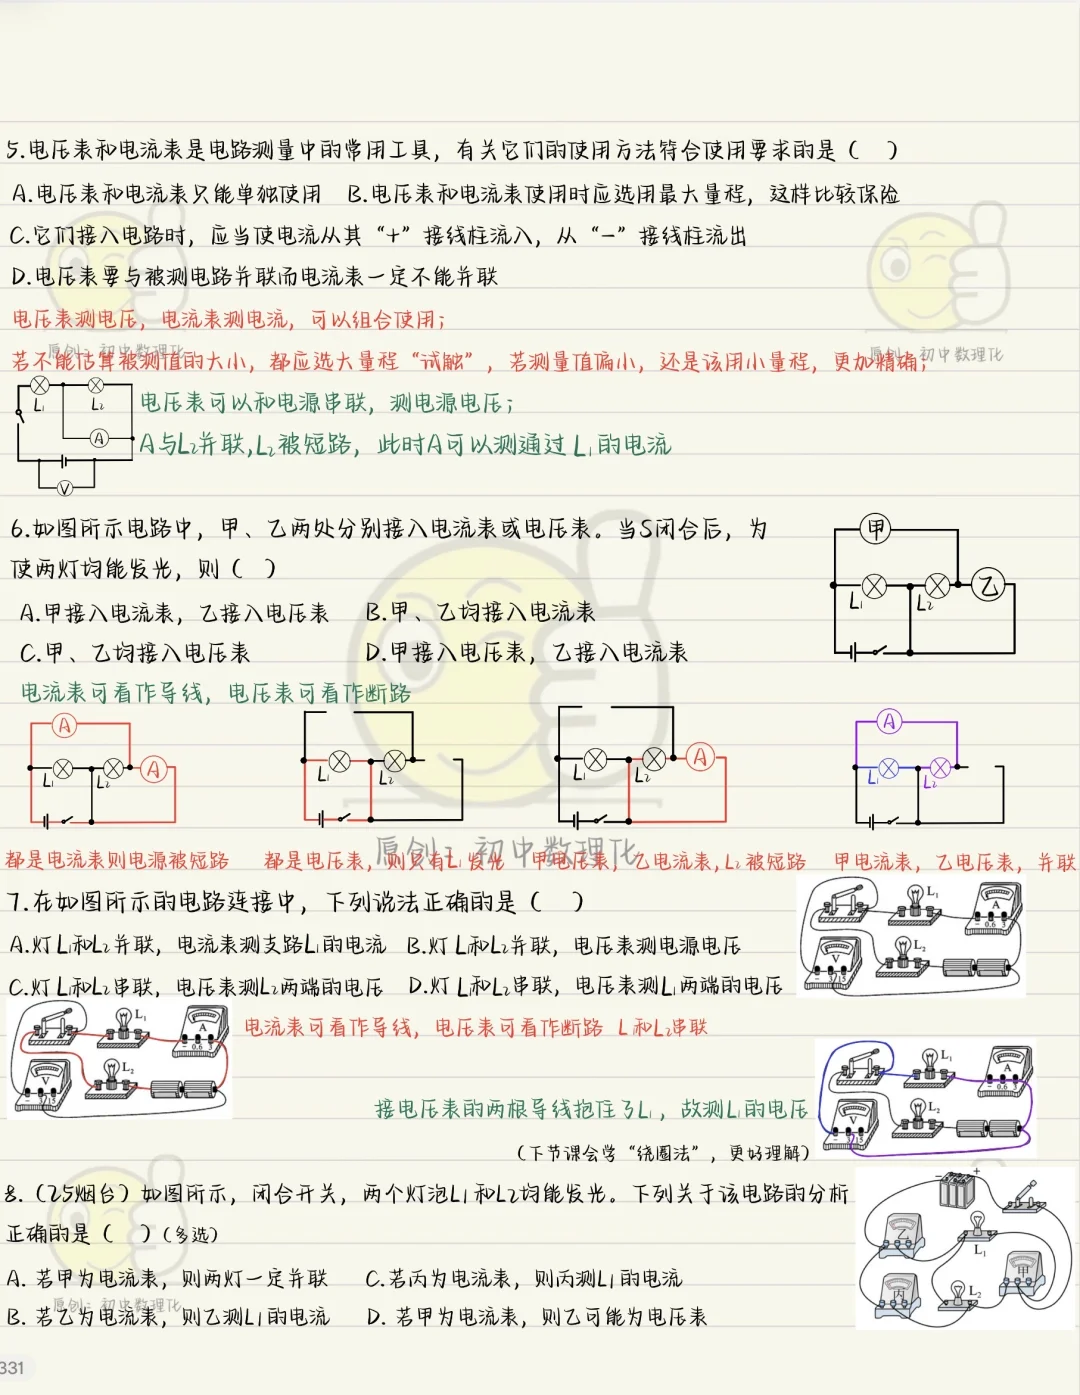 5.电压表和电流表是电路测量中的常用工具，有关它们的使用方法符合使用要求的是（　）
A.电压表和电流表只能单独使用　B.电压表和电流表使用时应选用最大量程，这样比较保险
C.它们接入电路时，应当使电流从其“+”接线柱流入，从“-”接线柱流出
D.电压表要与被测电路并联而电流表一定不能并联
电压表测电压，电流表测电流，可以组合使用；
若不能估算被测值的大小，都应选大量程“试触”，若测量值偏小，还是该用小量程，更加精确；
原创：初中数理化
原创：初中数理化
L₁ L₂
A
V
电压表可以和电源串联，测电源电压；
A与L₂并联,L₂被短路，此时A可以测通过L₁的电流
6.如图所示电路中，甲、乙两处分别接入电流表或电压表。当S闭合后，为
使两灯均能发光，则（　）
A.甲接入电流表，乙接入电压表　B.甲、乙均接入电流表
C.甲、乙均接入电压表　D.甲接入电压表，乙接入电流表
甲
L₁ L₂ 乙
电流表可看作导线，电压表可看作断路
A A
L₁ L₂ A L₁ L₂ L₁ L₂ A L₁ L₂
原创：初中数理化
都是电流表则电源被短路　都是电压表，则只有L₁发光　甲电压表，乙电流表,L₂被短路　甲电流表，乙电压表，并联
7.在如图所示的电路连接中，下列说法正确的是（　）
A.灯L₁和L₂并联，电流表测支路L₁的电流　B.灯L₁和L₂并联，电压表测电源电压
C.灯L₁和L₂串联，电压表测L₂两端的电压　D.灯L₁和L₂串联，电压表测L₁两端的电压
L₁
A
- 0.6 3
V
L₂
- 3 15
电流表可看作导线，电压表可看作断路　L₁和L₂串联
L₁
A
- 0.6 3
V
L₂
- 3 15
接电压表的两根导线抱住了L₁，故测L₁的电压
（下节课会学“绕圈法”，更好理解）
L₁
A
- 0.6 3
V
L₂
- 3 15
8.（25烟台）如图所示，闭合开关，两个灯泡L₁和L₂均能发光。下列关于该电路的分析
正确的是（　）（多选）
A. 若甲为电流表，则两灯一定并联　C.若丙为电流表，则丙测L₁的电流
原创：初中数理化
B. 若乙为电流表，则乙测L₁的电流　D. 若甲为电流表，则乙可能为电压表
- +
乙
L₁
甲
丙
L₂
331